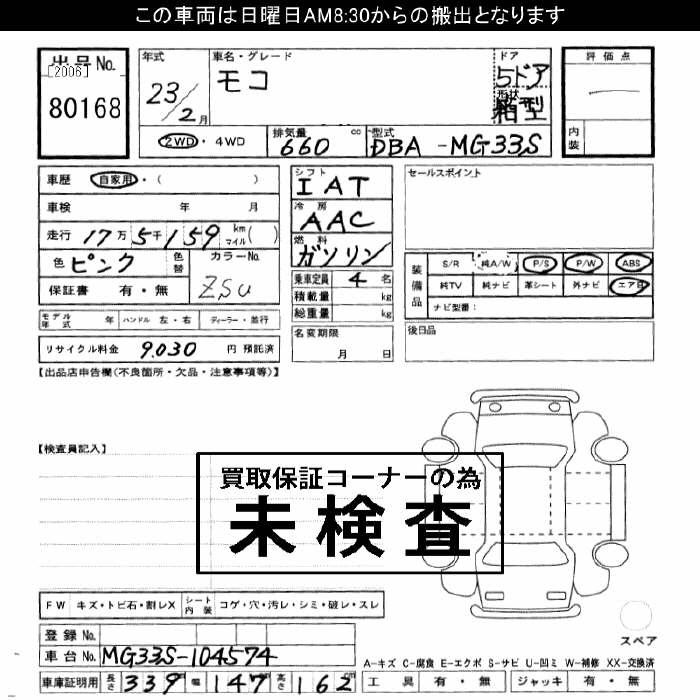 この車両は日曜日AM8:30からの搬出となります
出品No.
[2006]
80168
年式
23/2月
車名・グレード
モコ
ドア
5ドア
形状
箱型
評価点
内装
2WD・4WD
排気量
660 cc
型式
DBA-MG33S
車歴 自家用・( )
車検 年 月
走行 17万5千159 km マイル( )
色 ピンク 色替
カラーNo.
ZSU
保証書 有・無
シフト
IAT
冷房
AAC
燃料
ガソリン
乗車定員 4 名
積載量 kg
総重量 kg
名変期限
月 日
セールスポイント
装備品
S/R 純A/W P/S P/W ABS
純TV 純ナビ 革シート 外ナビ エアB
ナビ型番:
後日品
モデル年式 年 ハンドル 左・右 ディーラー・並行
リサイクル料金 9,030 円 預託済
【出品店申告欄(不良箇所・欠品・注意事項等)】
【検査員記入】
買取保証コーナーの為
未検査
FW キズ・トビ石・割レX シート内装 コゲ・穴・汚レ・シミ・破レ・スレ
スペア
登録No.
車台No. MG33S-104574
車庫証明用 長さ 339 幅 147 高さ 162 cm
A-キズ C-腐食 E-エクボ S-サビ U-凹ミ W-補修 XX-交換済
工具 有・無 ジャッキ 有・無